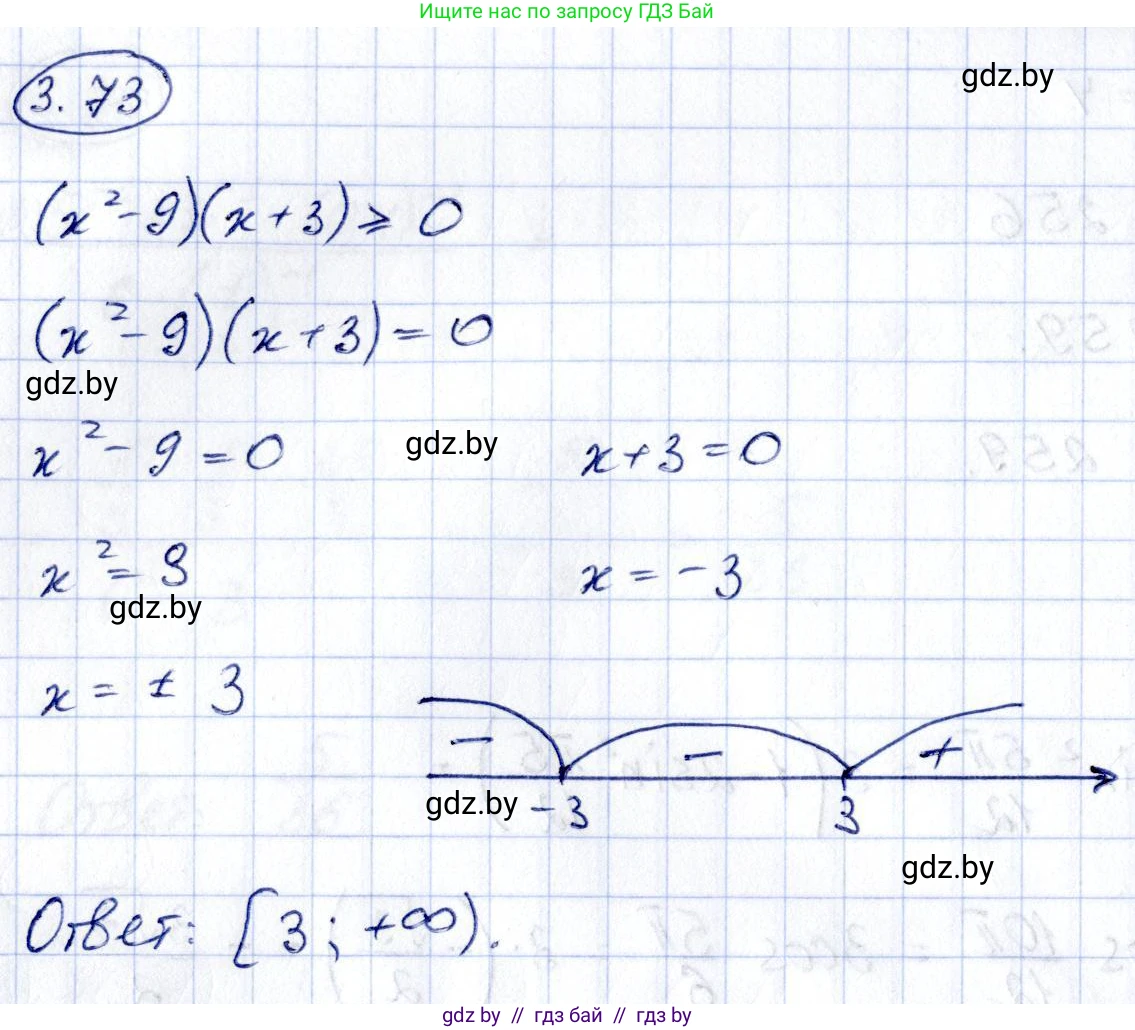 Ищите нас по запросу ГДЗ Бай
3.73
gdz.by
(x² - 9)(x + 3) ≥ 0
(x² - 9)(x + 3) = 0
gdz.by
x² - 9 = 0
gdz.by
x + 3 = 0
x² = 9
x = -3
gdz.by
x = ± 3
- - +
gdz.by
-3 3
gdz.by
Ответ: [3; +∞).
gdz.by // гдз бай // гдз by